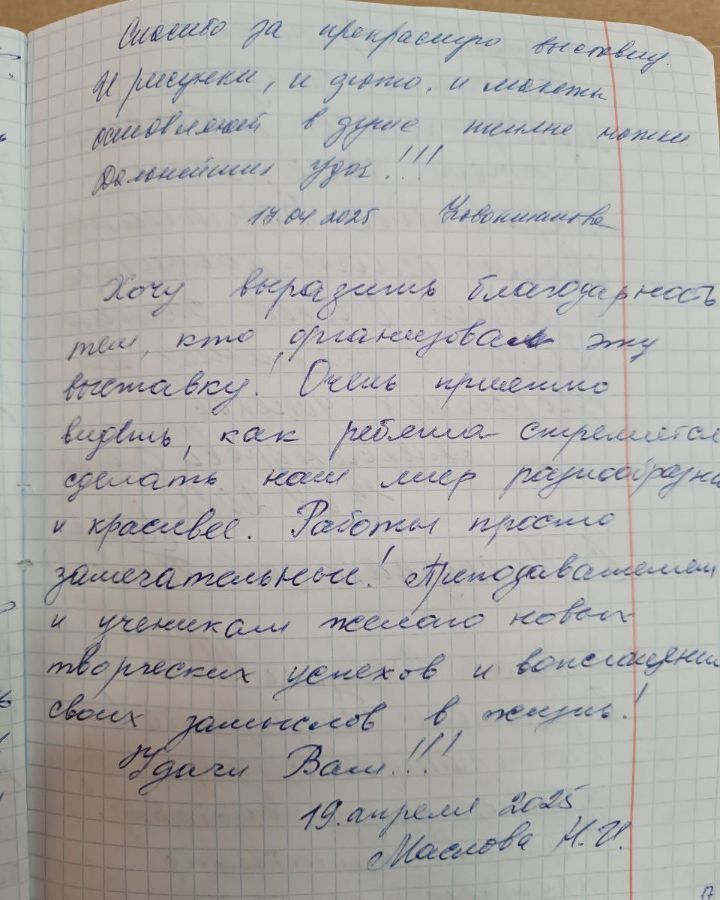 Спасибо за прекрасную выставку.
И рисунки, и фото, и макеты
оставляют в душе
Дальнейших удач!!!
17.04.2025
Хочу выразить благодарность
тем, кто организовал эту
выставку! Очень приятно
видеть, как ребята стремятся
сделать наш мир разнообразн
и красивее. Работы просто
замечательные! Преподавателям
и ученикам желаю новых
творческих успехов и воплощени
своих замыслов в жизнь!
Удачи Вам!!!
19. апреля 2025
Маслова Н.И.
17